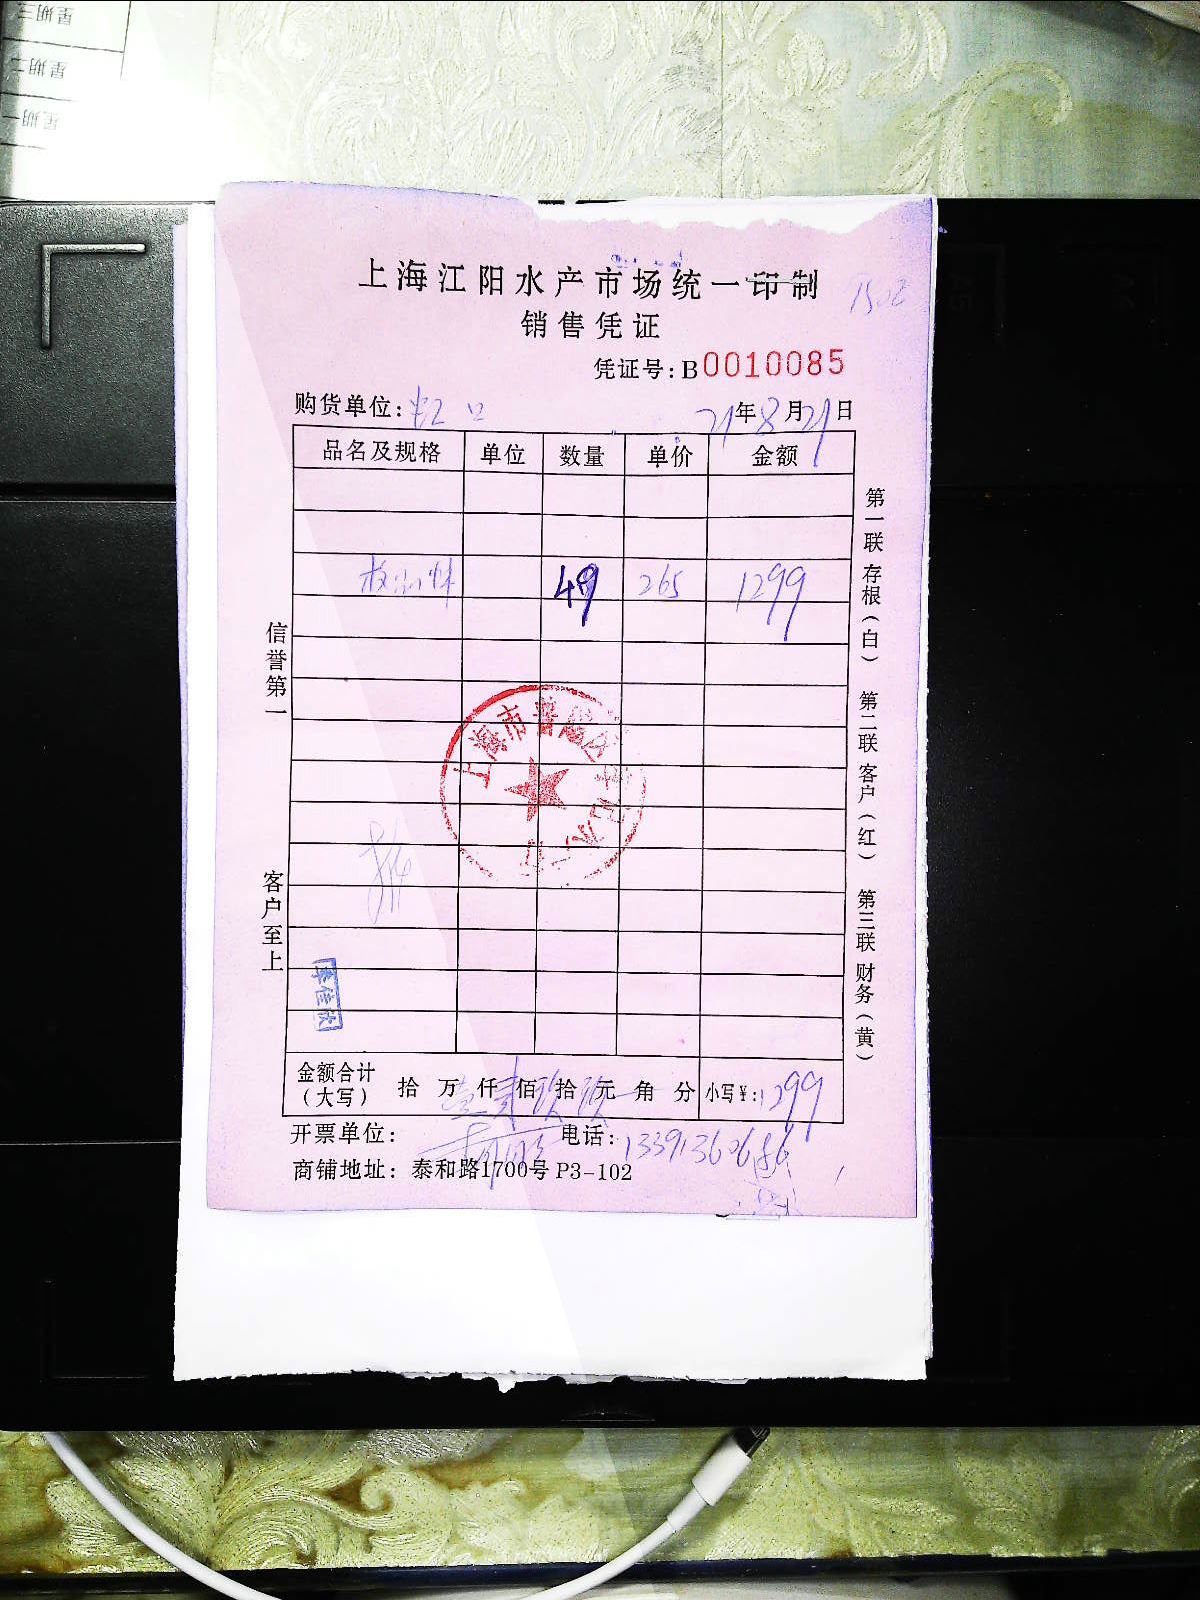 星期三
星期二
星期一
上海江阳水产市场统一印制
1502
销售凭证
凭证号:B0010085
购货单位:虹口
21年8月21日
品名及规格 单位 数量 单价 金额
49 265 1299
信誉第一
客户至上
第一联 存根(白) 第二联 客户(红) 第三联 财务(黄)
上海市普陀区
李佳欣
金额合计(大写) 拾 万 仟 佰 拾 元 角 分 小写¥:1299
开票单位: 电话:13391360686
商铺地址: 泰和路1700号 P3-102